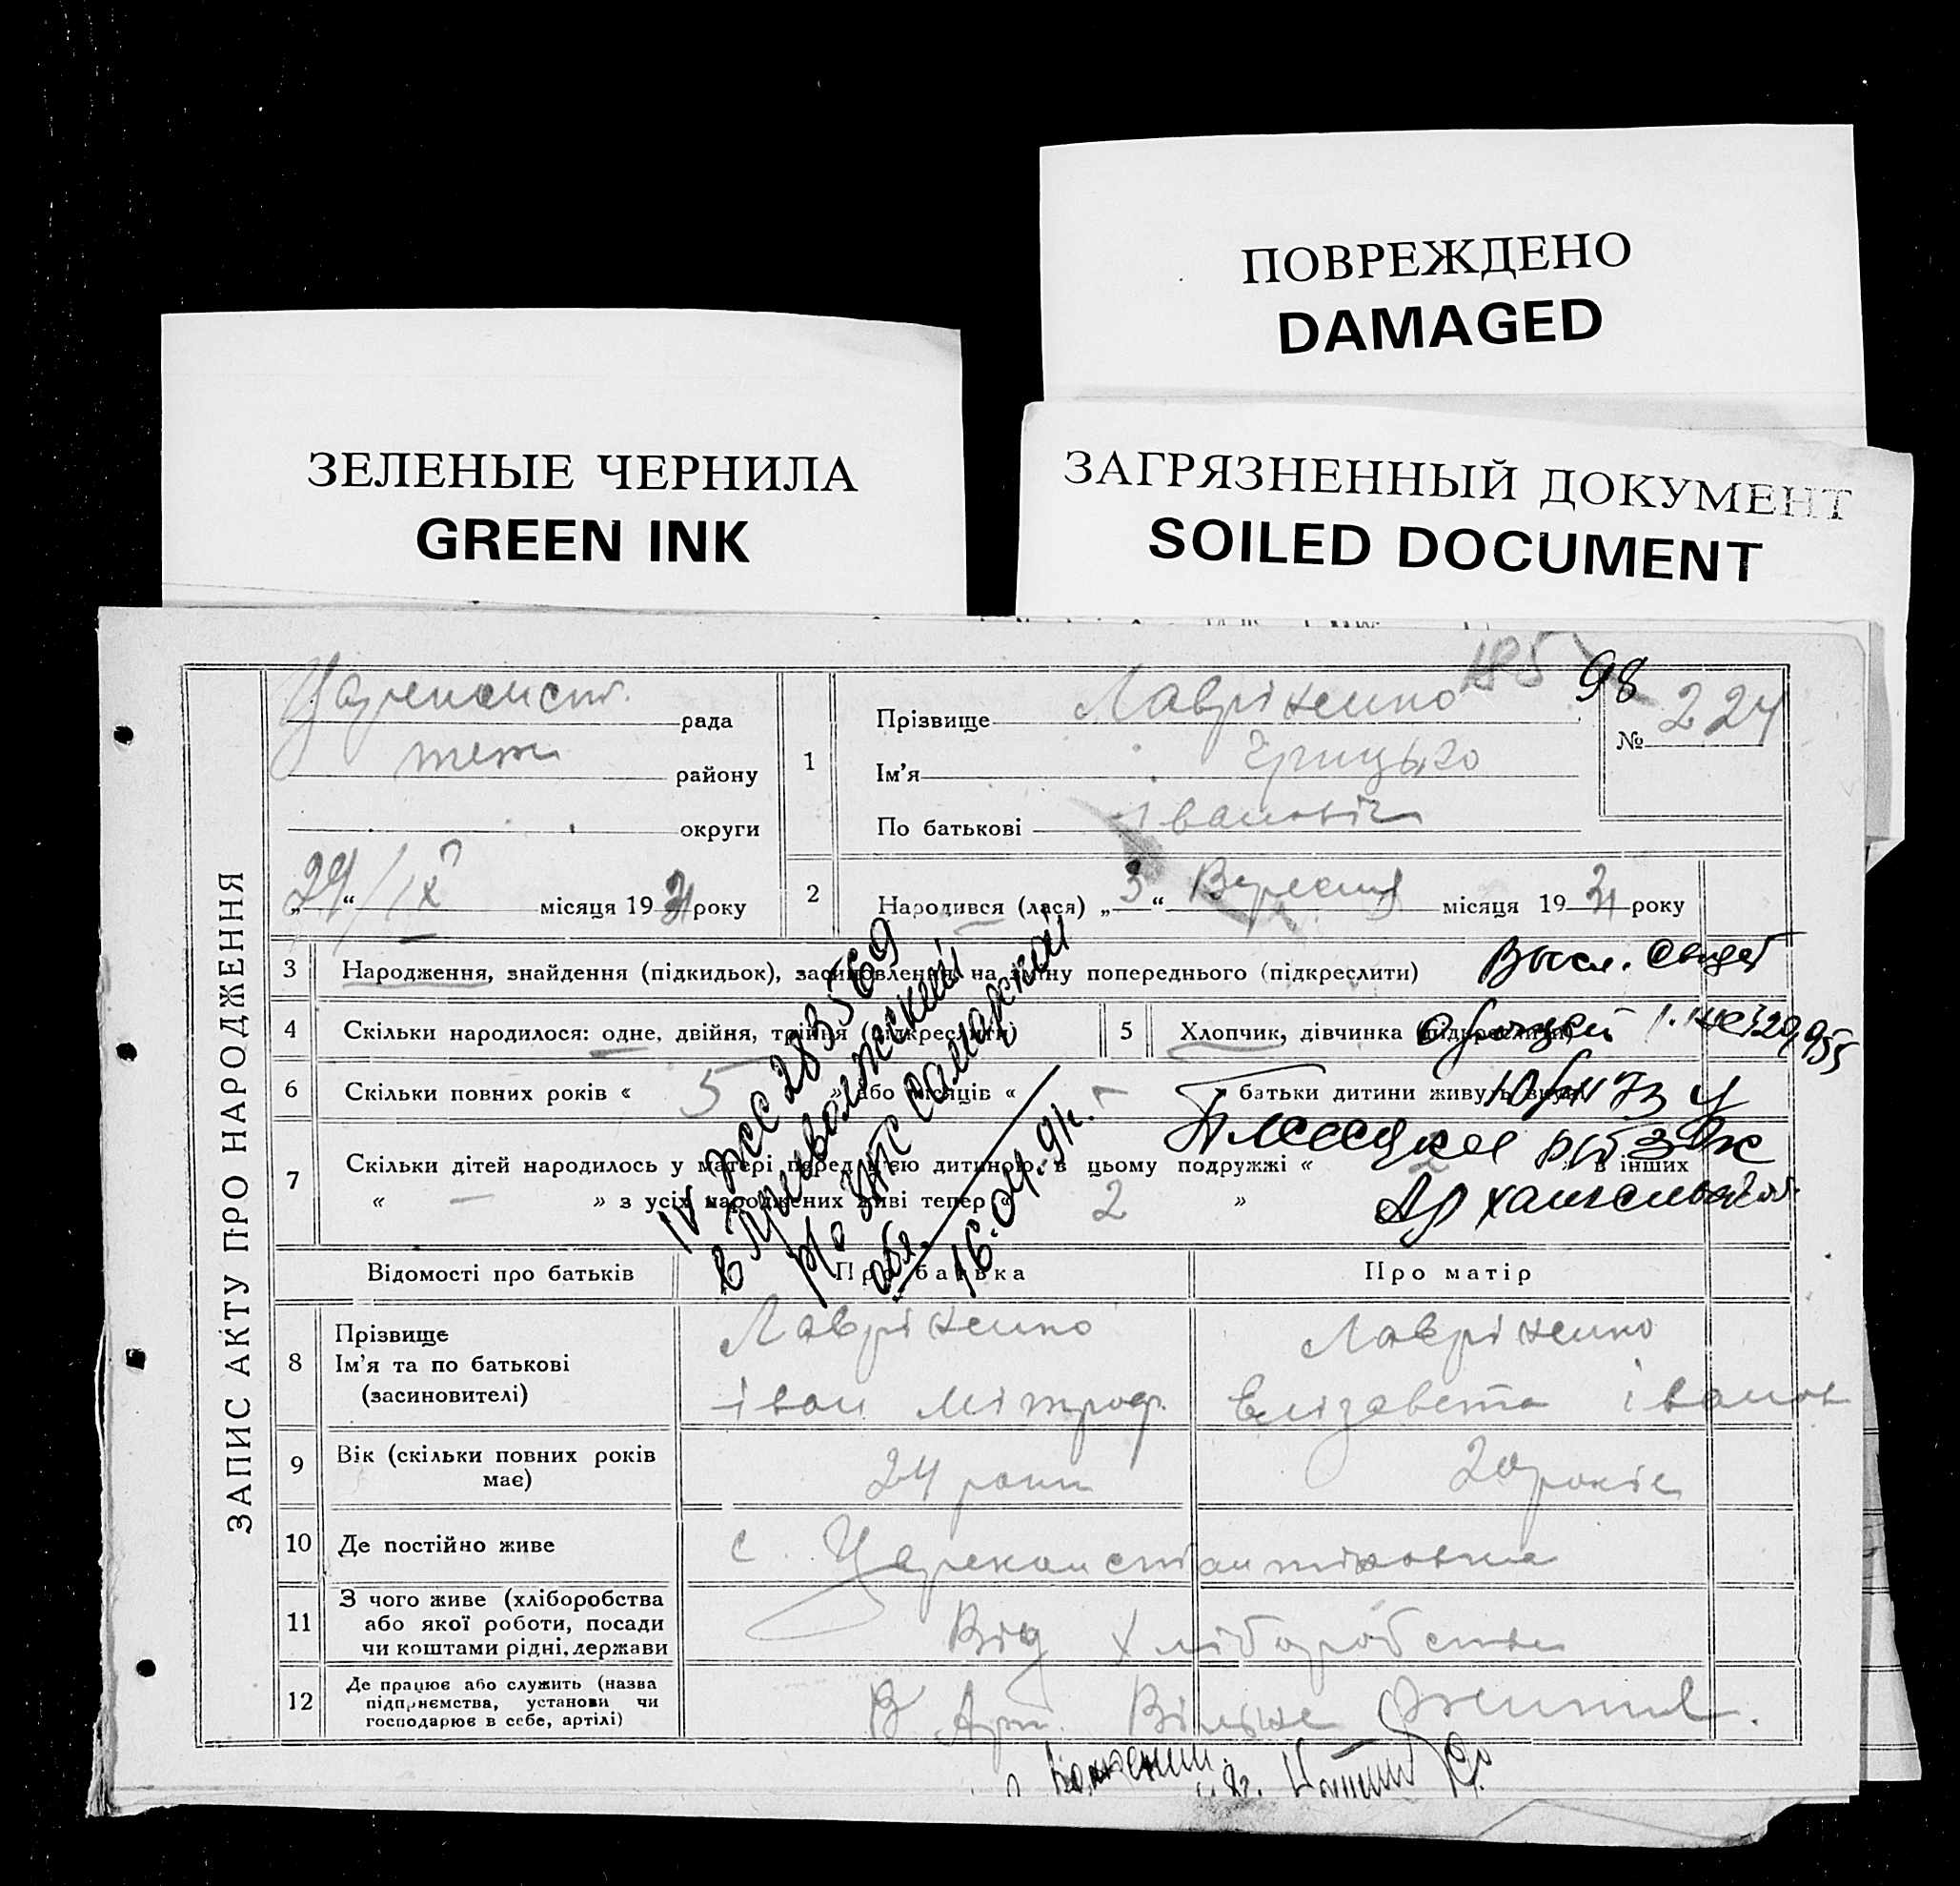 ПОВРЕЖДЕНО
DAMAGED
ЗЕЛЕНЫЕ ЧЕРНИЛА
GREEN INK
ЗАГРЯЗНЕННЫЙ ДОКУМЕНТ
SOILED DOCUMENT
ЗАПИС АКТУ ПРО НАРОДЖЕННЯ
185 98
рада
району
округи
29/IX місяця 1931 року
1
Прізвище Лавріненко
Ім'я Грицько
По батькові Іванович
№ 224
2 Народився (лася) „3“ Вересня місяця 1931 року
3 Народження, знайдення (підкидьок), засиновлення на зміну попереднього (підкреслити)
4 Скільки народилося: одне, двійня, трійня (підкреслити)
5 Хлопчик, дівчинка (підкреслити)
6 Скільки повних років « 5 » або місяців « — » батьки дитини живуть
7 Скільки дітей народилось у матері перед цією дитиною: в цьому подружжі « » в інших
« — » з усіх народжених живі тепер « 2 »
IV ЖС 283569
в Приволжский
р/о ЗАГС Самарской
обл.
16.04.91г.
Відомості про батьків
Про батька
Про матір
8 Прізвище
Ім'я та по батькові
(засиновителі)
Лавріненко
Іван Мітроф.
Лавріненко
Єлізавета Іванов
9 Вік (скільки повних років має)
24 роки
20 років
10 Де постійно живе
с. Цареконстантіновка
11 З чого живе (хліборобства
або якої роботи, посади
чи коштами рідні, держави
Від Хліборобства
12 Де працює або служить (назва
підприємства, установи чи
господарює в себе, артілі)
В Арт. Вільне Життя.